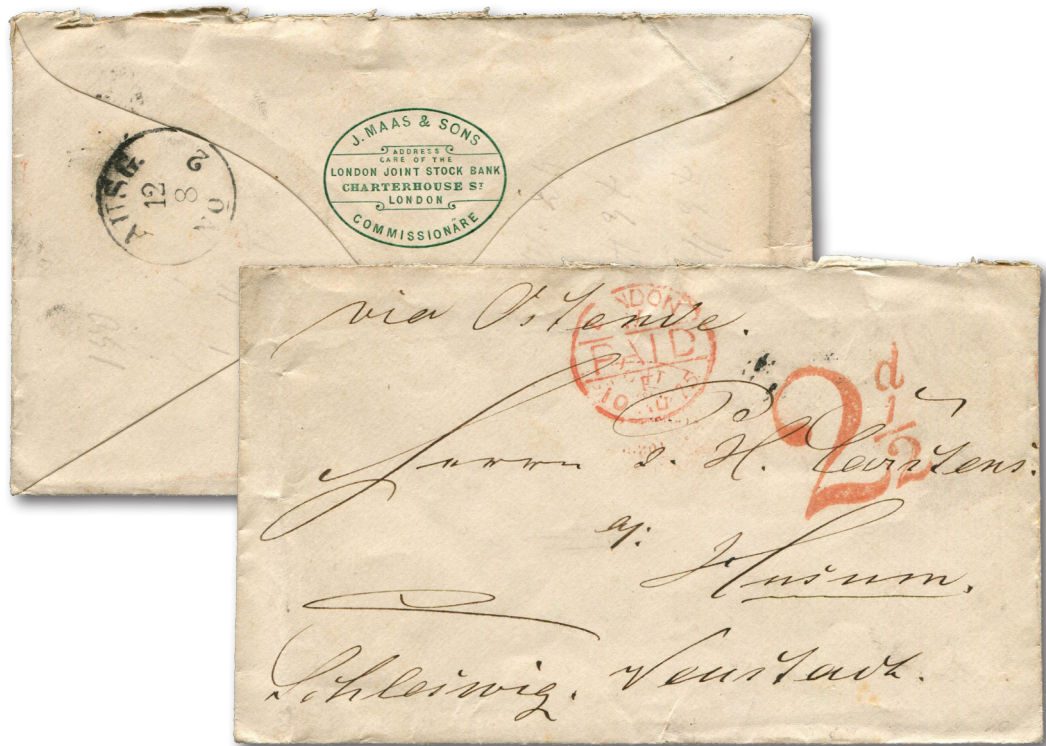 J. MAAS & SONS
ADDRESS
CARE OF THE
LONDON JOINT STOCK BANK
CHARTERHOUSE ST
LONDON
COMMISSIONÄRE
AUSG.
12
8
2
via Ostende.
PAID
10
2 d 1/2
Herrn J. H. Carstens.
Husum.
Schleswig. Neustadt.